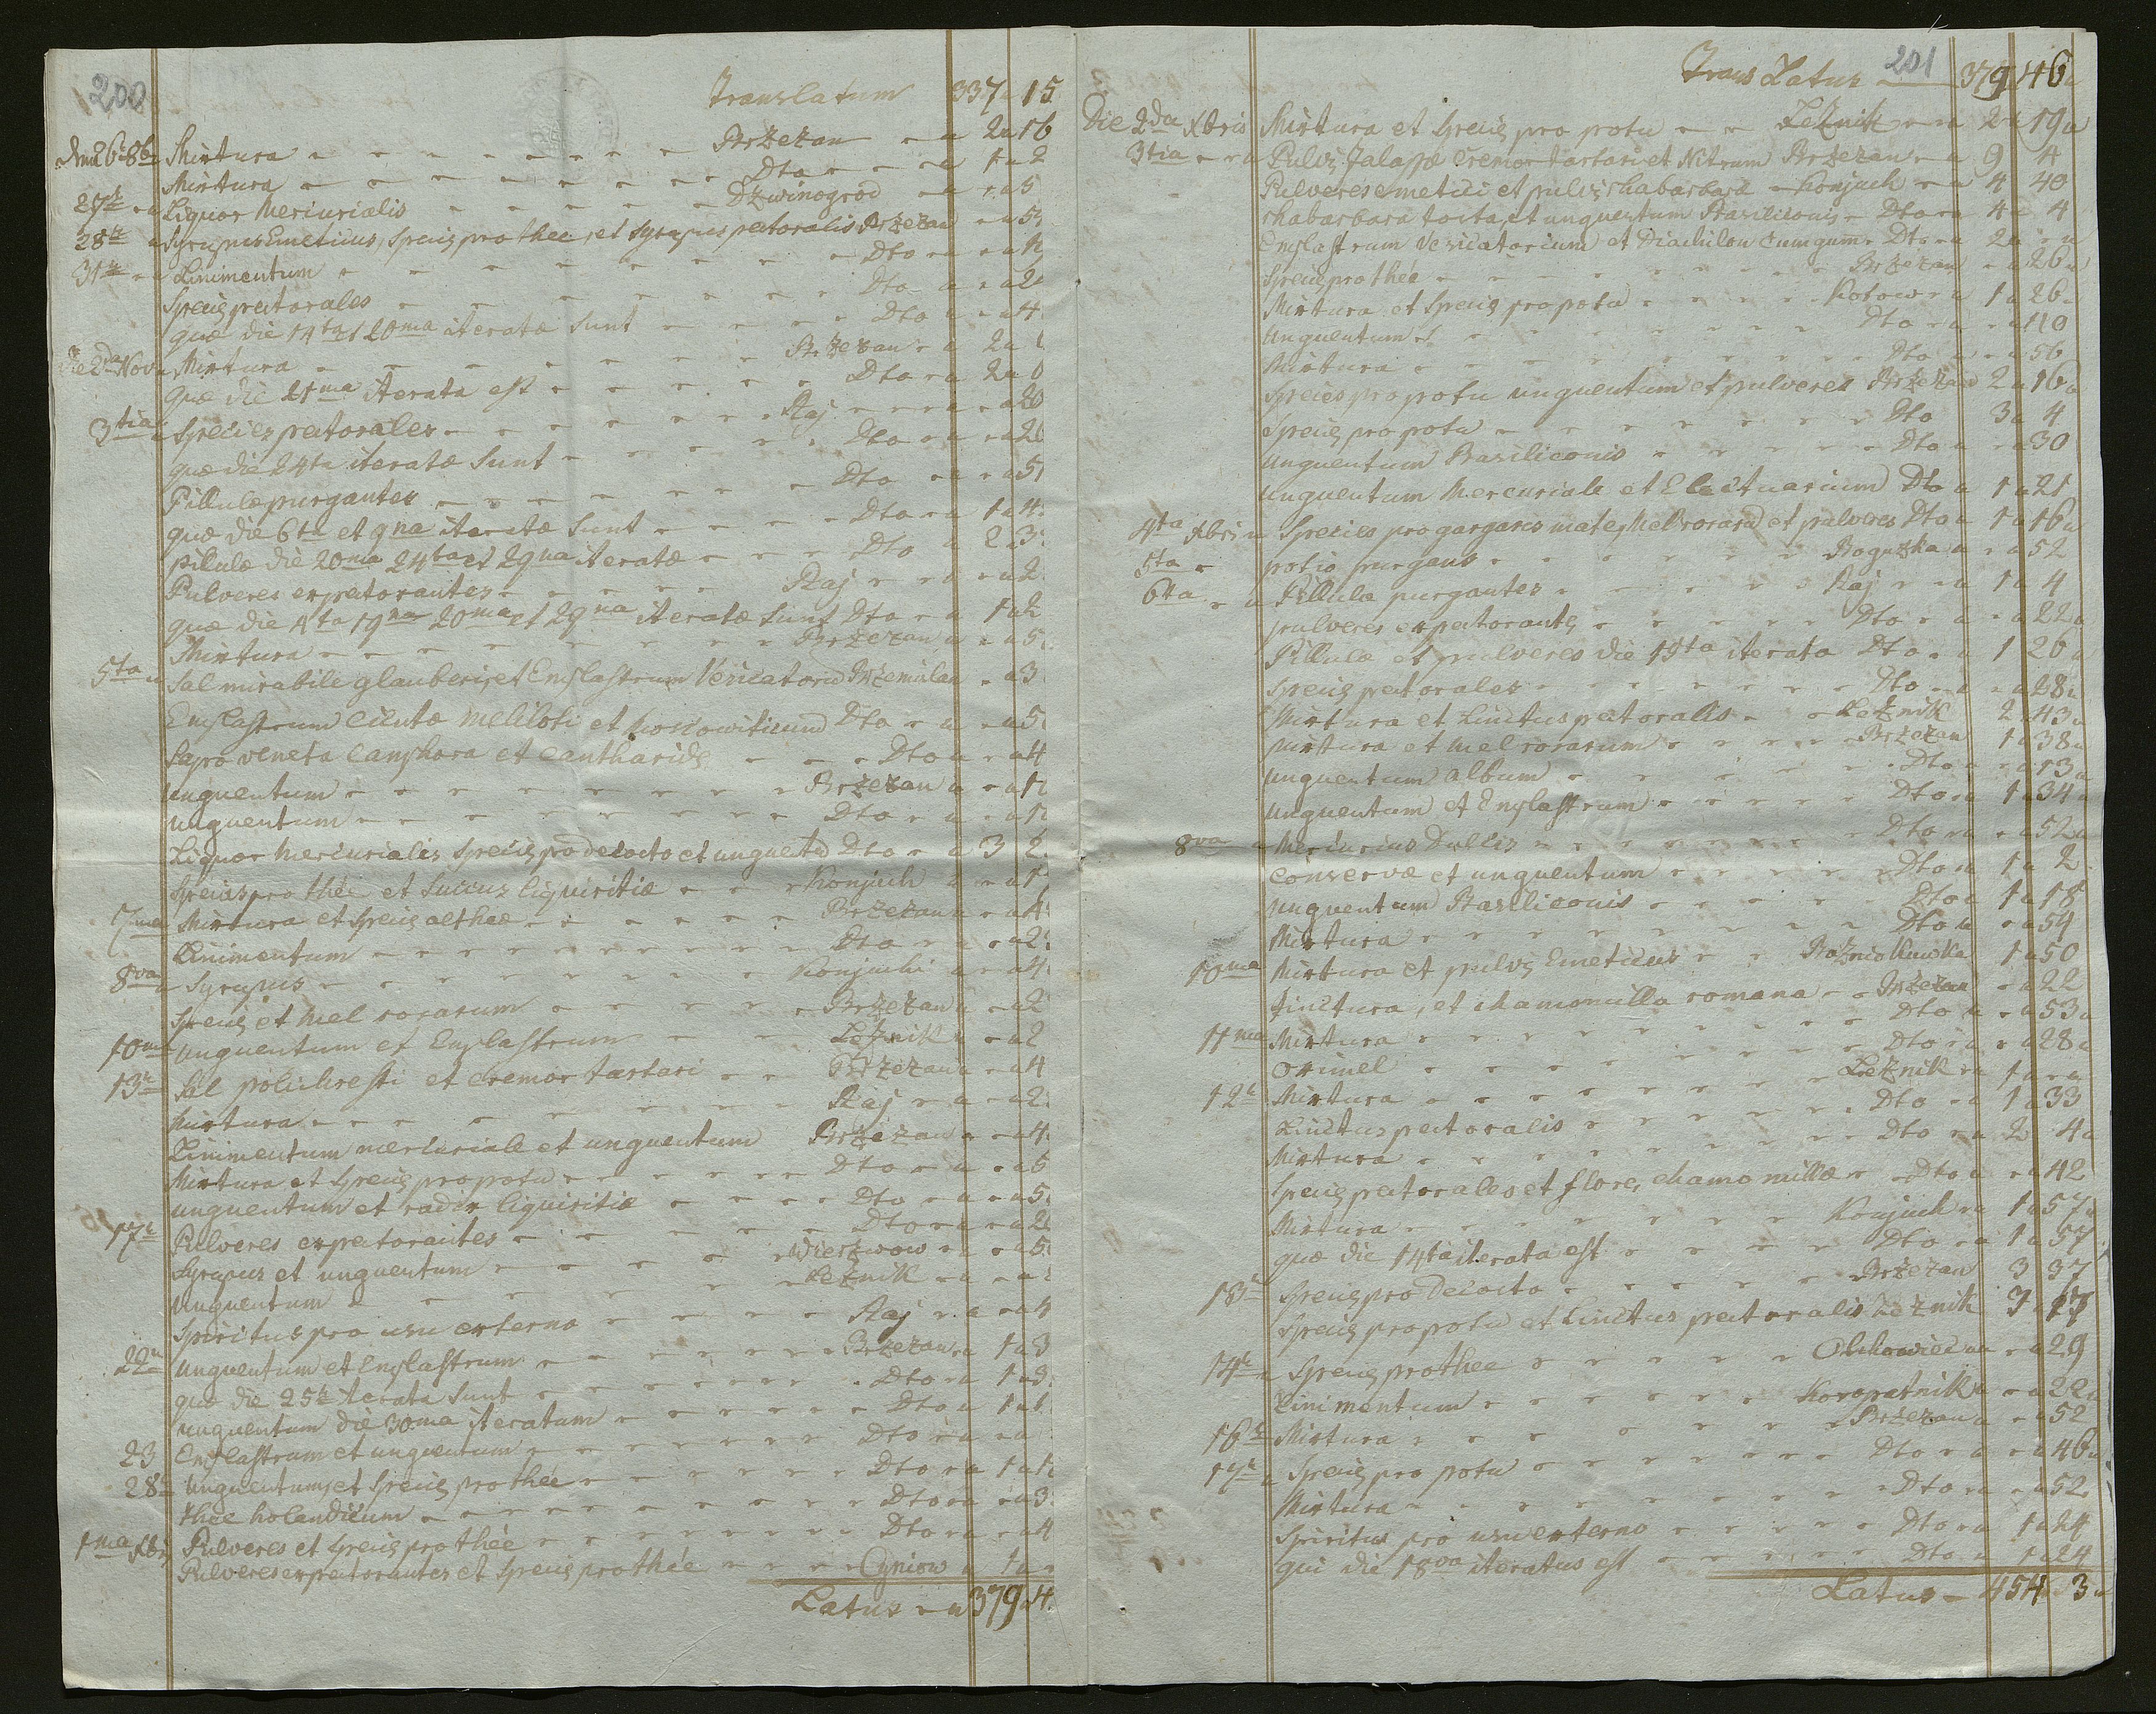 200
Translatum 337 15
26 8b Mixtura Brzezan 2 16
Mixtura Dto 1 2
27 Liquor Mercurialis Dzwinogrod 5
28 Syrupus Emeticus, Species pro thee, et Syrupus pectoralis Brzezan
31 Linimentum Dto
Species pectorales Dto
quæ die 14ta et 20ma iteratæ sunt Dto
Die 2da Nov Mixtura Brzezan 2
quæ die 21ma iterata est Dto 2
3tia Species pectorales Raj 20
quæ die 24ta iteratæ sunt Dto
Pillulæ purgantes Dto
quæ die 6ta et 9na iteratæ sunt Dto 1
pilulæ die 20ma 24ta et 29na iteratæ Dto 2
Pulveres expectorantes Raj
quæ die 4ta 19na 20ma et 29na iteratæ sunt Dto 1
Mixtura Brzezan
5ta Sal mirabile glauberi, et Emplastrum Vesicatoriu
Emplastrum Cicutæ Meliloti et Dto
Sapo veneta Camphora et Cantharides Dto
Unguentum Brzezan
Unguentum Dto
Liquor Mercurialis Species pro decocto et unguentu Dto 3
Species pro thée et Succus liquiritiæ Konjuch
7ma Mixtura et Species altheæ Brzezan
Linimentum Dto
8va Syrupus Konjuchi
Species et Mel rosarum Brzezan
10ma Unguentum et Emplastrum Leznik
13 Sal polichresti et Cremor tartari Brzezan
Mixtura Raj
Linimentum mercuriale et unguentum Brzezan
Mixtura et Species pro potu Dto
Unguentum et radix liquiritiæ Dto
17 Pulveres expectorantes Dto
Syrupus et unguentum Wierzwow
Unguentum Leznik
Spiritus pro usu externo Raj
22 Unguentum et Emplastrum Brzezan 1
quæ die 25 iterata sunt Dto 1
Unguentum die 30ma iteratum Dto 1
23 Emplastrum et unguentum Dto
28 Unguentum et Species pro thée Dto 1
thee holandicum Dto
1ma Xbris Pulveres et Species pro thée Dto
Pulveres expectorantes et Species pro thée Cyniow 1
Latus 379 4
201
Trans Latus 379 46
Die 2da Xbris Mixtura et Species pro potu Leznik 2 19
3tia Pulvis Jalappæ Cremor tartari et Nitrum Brzezan 9 4
Pulveres emetici et pulvis rhabarbara Konjuch 4 40
rhabarbara tosta, et unguentum Basiliconis Dto 4 4
Emplastrum Vesicatorium et Diachilon Cum gum Dto 2
Species pro thée Brzezan 26
Mixtura et Species pro potu Kotow 1 26
Unguentum Dto 10
Mixtura Dto 56
Species pro potu unguentum et pulveres Brzezan 2 16
Species pro potu Dto 3 4
Unguentum Basiliconis Dto 30
Unguentum Mercuriale et Electuarium Dto 1 21
4ta Xbris Species pro gargarismate, Mel rosaru et pulveres Dto 1 16
5ta potio purgans Boguzka 52
6ta Pillulæ purgantes Raj 1 4
pulveres expectorantes Dto 22
Pillulæ et pulveres die 15ta iterata Dto 1 26
Species pectorales Dto 28
Mixtura et Linctus pectoralis Leznik 2 43
Mixtura et Mel rosarum Brzezan 1 38
Unguentum album Dto 13
Unguentum et Emplastrum Dto 1 34
8va Mercurius Dulcis Dto 52
Conservæ et unguentum Dto 1 2
Unguentum Basiliconis Dto 1 18
Mixtura Dto 59
10ma Mixtura et pulvis Emeticus 1 50
tinctura, et chamomilla romana Brzezan 22
11ma Mixtura Dto 53
Oximel Dto 28
12 Mixtura Leznik 1
Linctus pectoralis Dto 1 33
Mixtura Dto 2 4
Species pectorales et flores chamomillæ Dto 42
Mixtura Konjuch 1 57
quæ die 14ta iterata est Dto 1 57
13 Species pro Decocto Brzezan 3 37
Species pro potu et Linctus pectoralis Leznik 3 17
14 Species pro thee Olchowiec 29
Linimentum Koropatnik 22
16 Mixtura Brzezan 52
17 Species pro potu Dto 46
Mixtura Dto 52
Spiritus pro usu externo Dto 1 24
qui die 18va iteratus est Dto 1 24
Latus 454 3